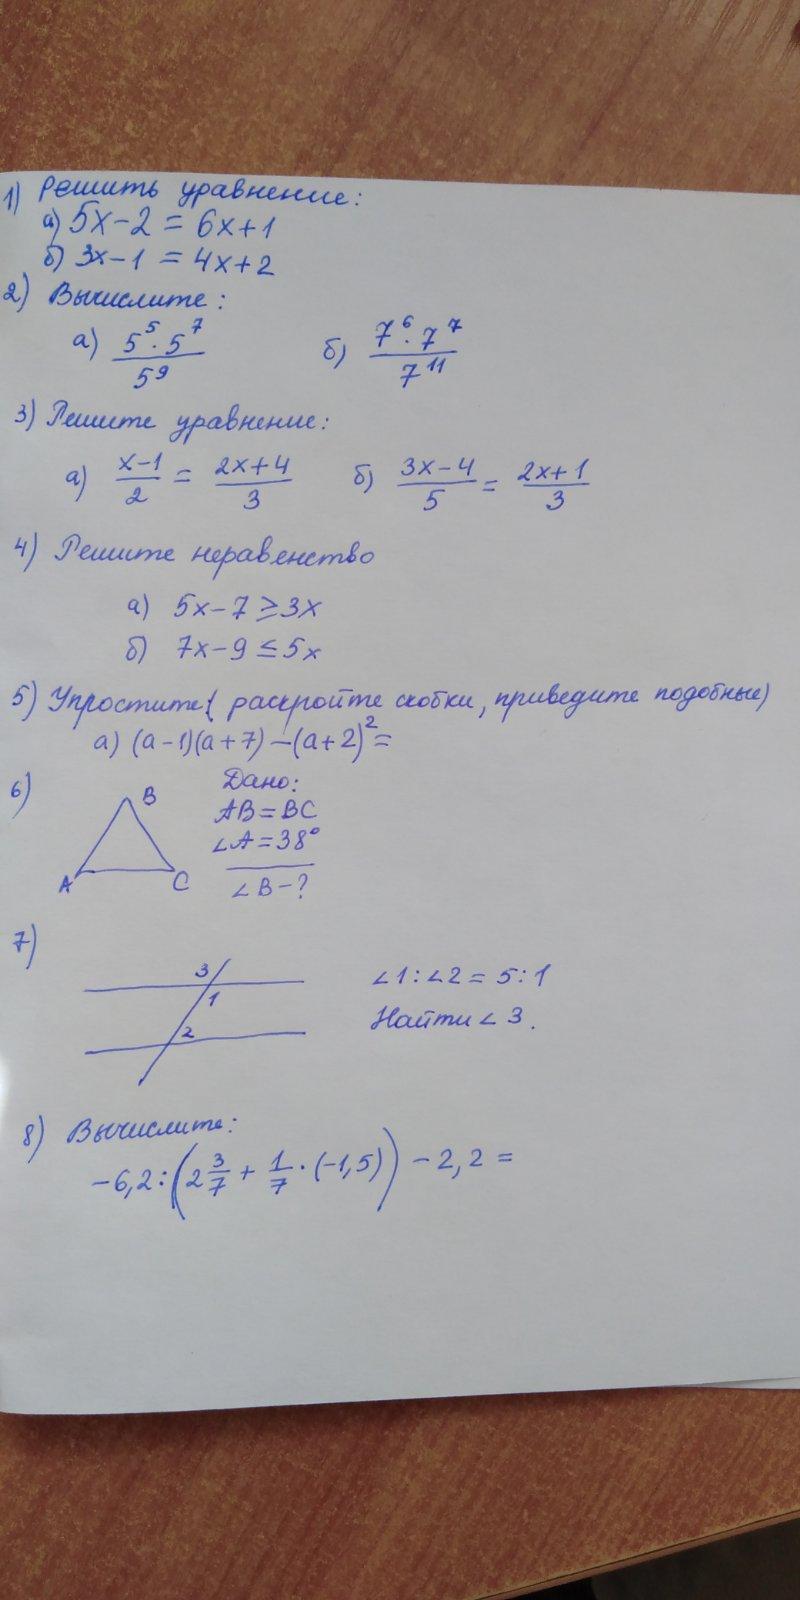 1) Решить уравнение:
а) 5х-2 = 6х+1
б) 3х-1 = 4х+2
2) Вычислите:
а) (5⁵·5⁷)/5⁹ б) (7⁶·7⁷)/7¹¹
3) Решите уравнение:
а) (х-1)/2 = (2х+4)/3 б) (3х-4)/5 = (2х+1)/3
4) Решите неравенство
а) 5х-7 ≥ 3х
б) 7х-9 ≤ 5х
5) Упростите ( раскройте скобки, приведите подобные)
а) (а-1)(а+7) - (а+2)² =
6) B Дано:
AB = BC
∠A = 38°
A C ∠B - ?
7)
3 ∠1 : ∠2 = 5 : 1
1 Найти ∠3.
2
8) Вычислите:
-6,2 : (2 3/7 + 1/7 · (-1,5)) - 2,2 =